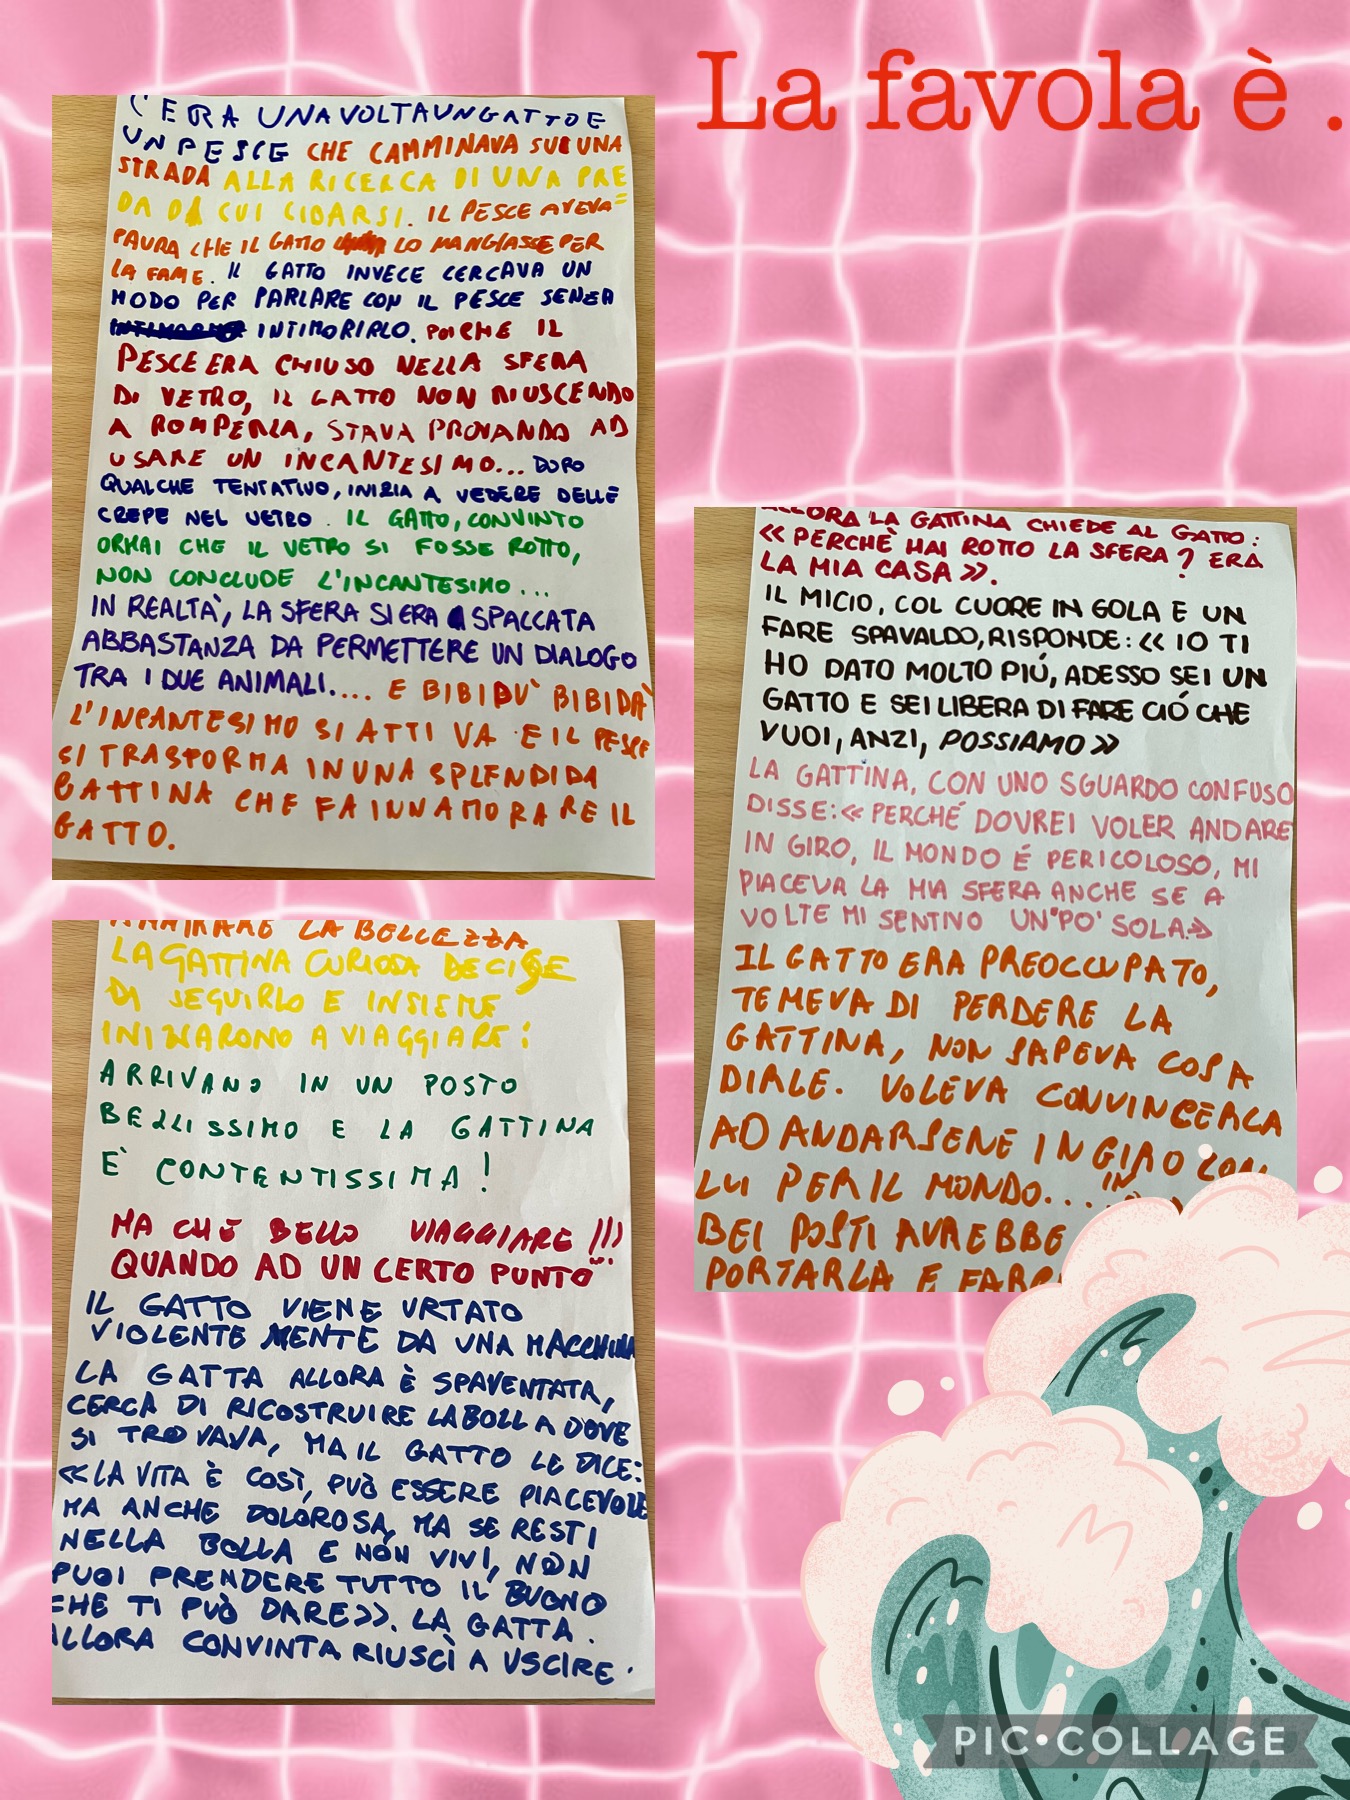 La favola è .
C'ERA UNA VOLTA UN GATTO E
UN PESCE CHE CAMMINAVA SU UNA
STRADA ALLA RICERCA DI UNA PRE
DA DI CUI CIBARSI. IL PESCE AVEVA=
PAURA CHE IL GATTO LO MANGIASSE PER
LA FAME. IL GATTO INVECE CERCAVA UN
MODO PER PARLARE CON IL PESCE SENZA
INTIMORIRLO. POICHE IL
PESCE ERA CHIUSO NELLA SFERA
DI VETRO, IL GATTO NON RIUSCENDO
A ROMPERLA, STAVA PROVANDO AD
USARE UN INCANTESIMO... DOPO
QUALCHE TENTATIVO, INIZIA A VEDERE DELLE
CREPE NEL VETRO. IL GATTO, CONVINTO
ORMAI CHE IL VETRO SI FOSSE ROTTO,
NON CONCLUDE L'INCANTESIMO...
IN REALTA', LA SFERA SI ERA SPACCATA
ABBASTANZA DA PERMETTERE UN DIALOGO
TRA I DUE ANIMALI.... E BIBIDÙ BIBIDÀ
L'INCANTESIMO SI ATTIVA E IL PESCE
SI TRASFORMA IN UNA SPLENDIDA
GATTINA CHE FA INNAMORARE IL
GATTO.
ALLORA LA GATTINA CHIEDE AL GATTO:
« PERCHÈ HAI ROTTO LA SFERA ? ERA
LA MIA CASA ».
IL MICIO, COL CUORE IN GOLA E UN
FARE SPAVALDO, RISPONDE: « IO TI
HO DATO MOLTO PIÚ, ADESSO SEI UN
GATTO E SEI LIBERA DI FARE CIÓ CHE
VUOI, ANZI, POSSIAMO »
LA GATTINA, CON UNO SGUARDO CONFUSO
DISSE: « PERCHÉ DOVREI VOLER ANDARE
IN GIRO, IL MONDO É PERICOLOSO, MI
PIACEVA LA MIA SFERA ANCHE SE A
VOLTE MI SENTIVO UN PO' SOLA.»
IL GATTO ERA PREOCCUPATO,
TEMEVA DI PERDERE LA
GATTINA, NON SAPEVA COSA
DIRLE. VOLEVA CONVINCERLA
AD ANDARSENE IN GIRO CON
LUI PER IL MONDO... IN
BEI POSTI AVREBBE
PORTARLA E
AMMIRARE LA BELLEZZA
LA GATTINA CURIOSA DECISE
DI SEGUIRLO E INSIEME
INIZIARONO A VIAGGIARE:
ARRIVANO IN UN POSTO
BELLISSIMO E LA GATTINA
E' CONTENTISSIMA!
MA CHE BELLO VIAGGIARE !!!
QUANDO AD UN CERTO PUNTO...
IL GATTO VIENE URTATO
VIOLENTEMENTE DA UNA MACCHINA
LA GATTA ALLORA È SPAVENTATA,
CERCA DI RICOSTRUIRE LA BOLLA DOVE
SI TROVAVA, MA IL GATTO LE DICE:
« LA VITA È COSÌ, PUÒ ESSERE PIACEVOLE
MA ANCHE DOLOROSA, MA SE RESTI
NELLA BOLLA E NON VIVI, NON
PUOI PRENDERE TUTTO IL BUONO
CHE TI PUÒ DARE ». LA GATTA.
ALLORA CONVINTA RIUSCÌ A USCIRE.
PIC•COLLAGE